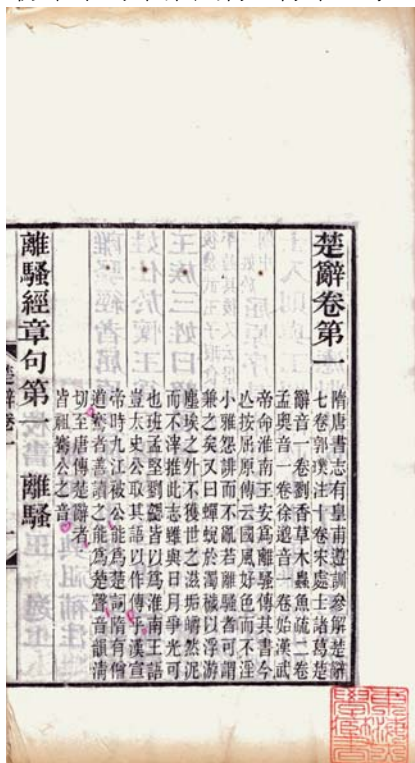 楚辭卷第一
隋唐書志有皇甫遵訓參解楚辭
七卷郭璞注十卷宋處士諸葛楚
辭音一卷劉杳草木蟲魚疏二卷
孟奧音一卷徐邈音一卷始漢武
帝命淮南王安為離騷傳其書今
亡按屈原傳云國風好色而不淫
小雅怨誹而不亂若離騷者可謂
兼之矣又曰蟬蛻於濁穢以浮游
塵埃之外不獲世之滋垢皭然泥
而不滓推此志雖與日月爭光可
也班孟堅劉勰皆以為淮南王語
豈太史公取其語以作傳乎漢宣
帝時九江被公能為楚詞隋有僧
道騫者善讀之能為楚聲音韻清
切至唐傳楚辭者
皆祖騫公之音
離騷經章句第一 離騷